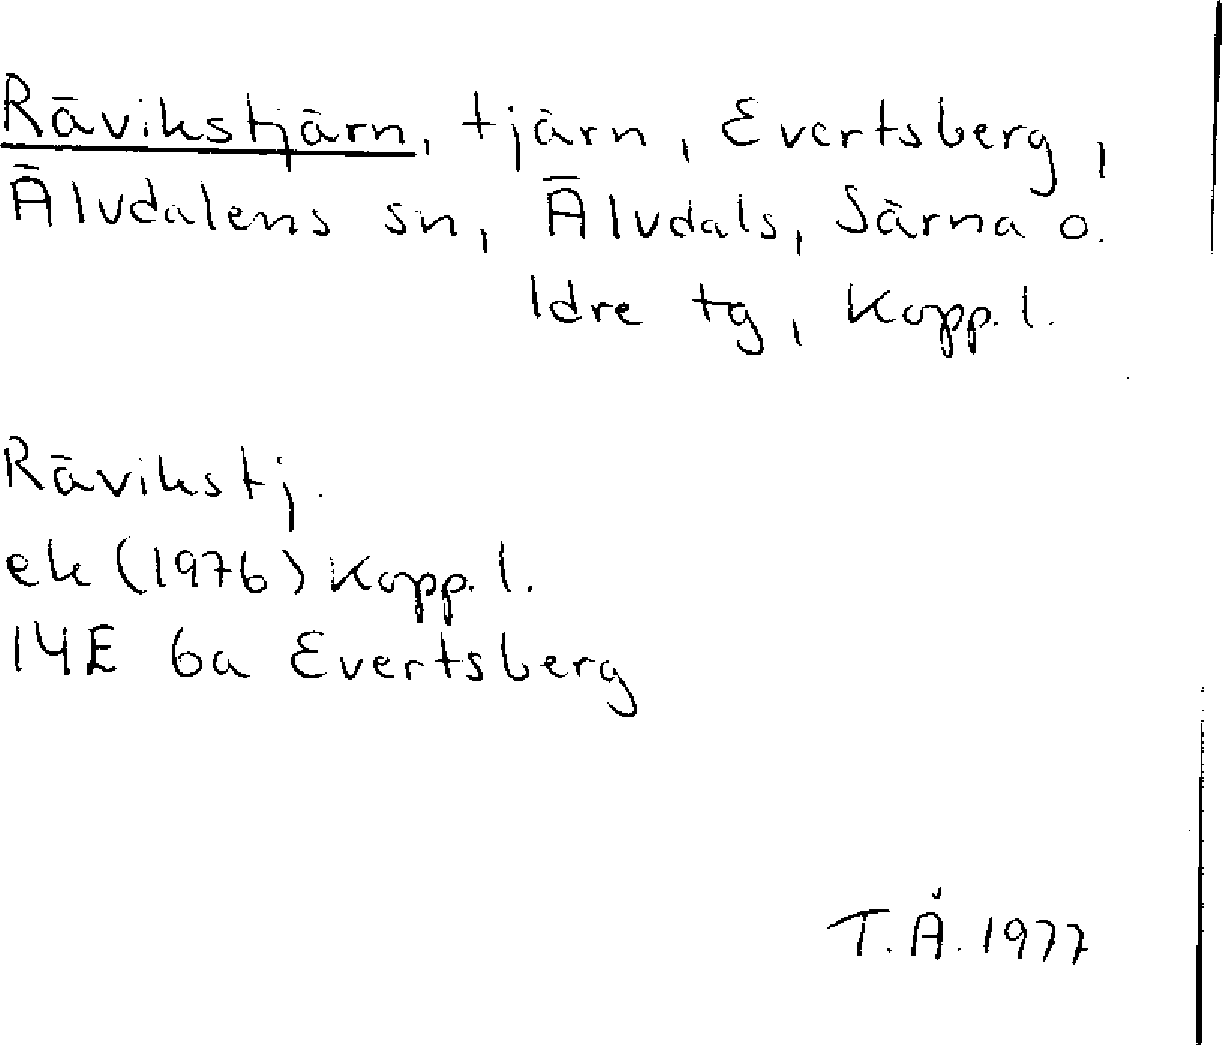 Rävikstjärn, tjärn, Evertsberg,
Älvdalens sn, Älvdals, Särna o.
Idre tg, Kopp. l.
Rävikstj.
ek (1976) Kopp. l.
14E 6a Evertsberg
T.Å. 1977